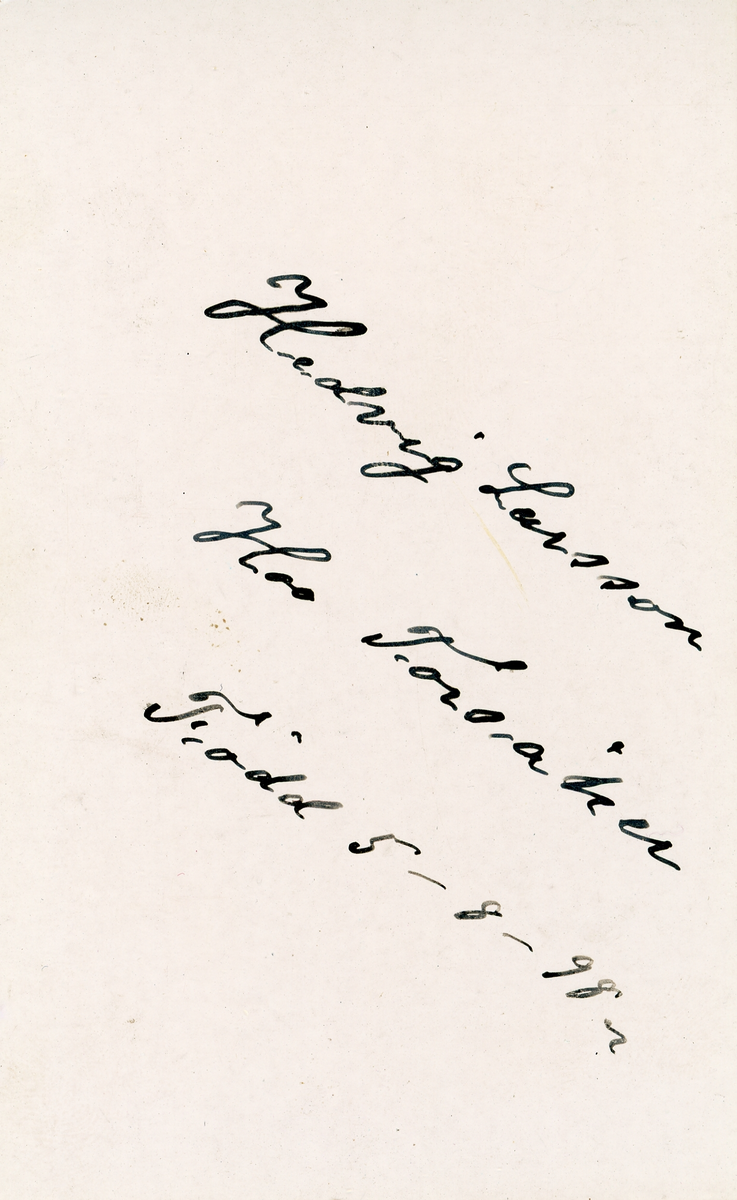 Hedvig Larsson
Hoo Torsåker
Född 5-8-98